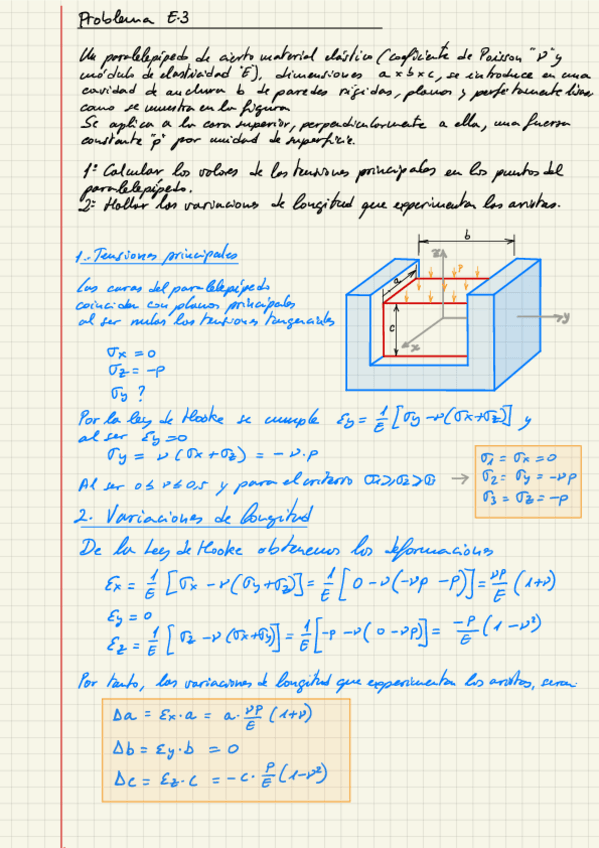 Problema E.3
Un paralelepípedo de cierto material elástico (coeficiente de Poisson "ν" y
módulo de elasticidad "E"), dimensiones a x b x c, se introduce en una
cavidad de anchura b de paredes rígidas, planas y perfectamente lisas
como se muestra en la figura.
Se aplica a la cara superior, perpendicularmente a ella, una fuerza
constante "p" por unidad de superficie.
1º Calcular los valores de las tensiones principales en los puntos del
paralelepípedo.
2º Hallar las variaciones de longitud que experimentan las aristas.
1.- Tensiones principales
Las caras del paralelepípedo
coinciden con planos principales
al ser nulas las tensiones tangenciales
σx = 0
σz = -p
σy ?
b
z
p
a
c
y
x
Por la ley de Hooke se cumple εy = 1/E [σy - ν(σx+σz)] y
al ser εy = 0
σy = ν (σx + σz) = - ν·p
Al ser 0 ≤ ν ≤ 0,5 y para el criterio σ1 ≥ σ2 ≥ σ3 →
σ1 = σx = 0
σ2 = σy = -νp
σ3 = σz = -p
2. Variaciones de longitud
De la Ley de Hooke obtenemos las deformaciones
εx = 1/E [σx - ν(σy+σz)] = 1/E [0 - ν(-νp - p)] = νp/E (1+ν)
εy = 0
εz = 1/E [σz - ν(σx+σy)] = 1/E [-p - ν(0 - νp)] = -p/E (1-ν²)
Por tanto, las variaciones de longitud que experimentan las aristas, serán:
Δa = εx·a = a·νp/E (1+ν)
Δb = εy·b = 0
Δc = εz·c = -c·p/E (1-ν²)